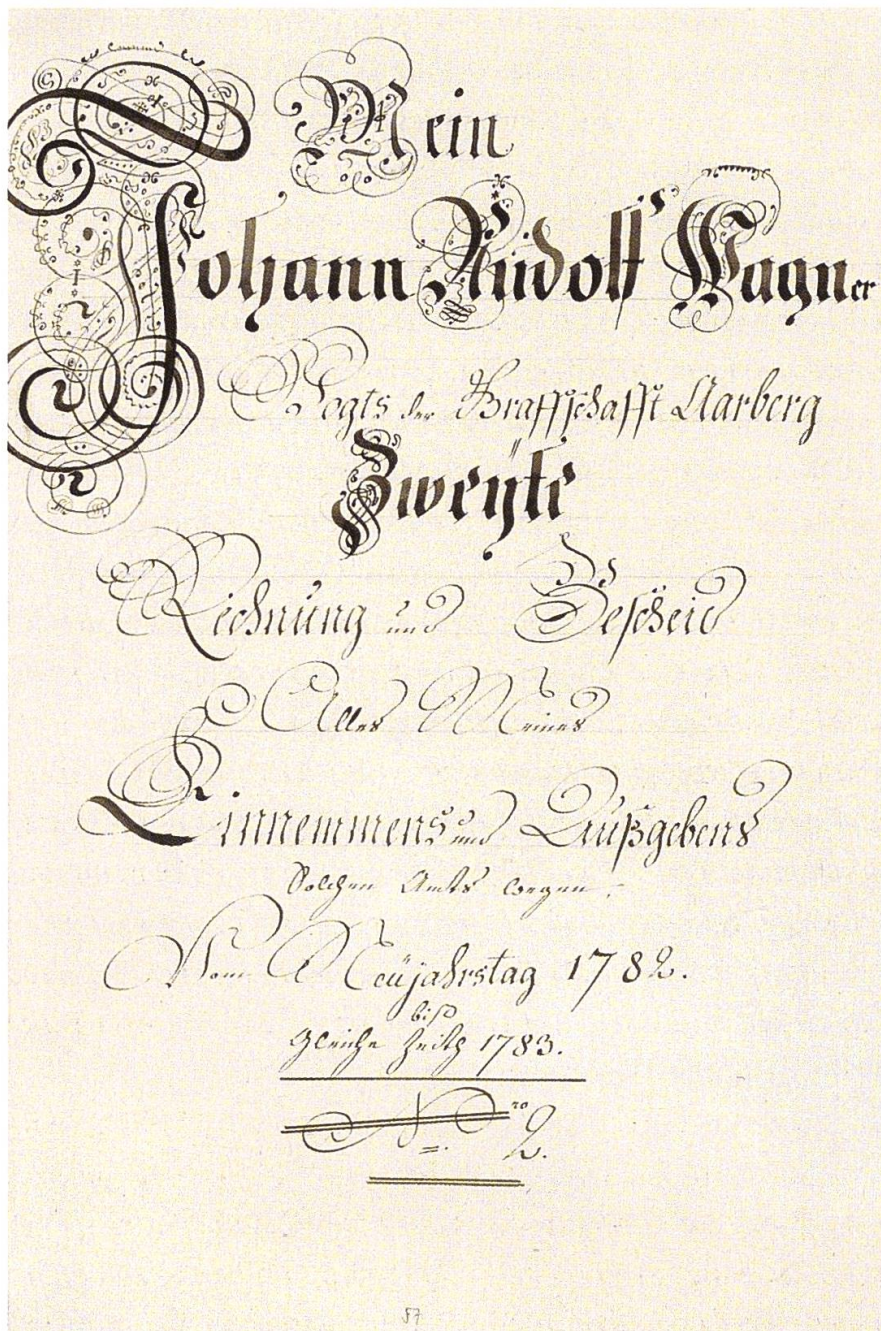 Mein
Johann Rudolff Wagner
Vogts der Graffschafft Aarberg
Zweÿte
Rechnung und Bescheid
Alles Meines
Einnemmens und Außgebens
Solchen Amts wegen.
Vom Neüjahrstag 1782.
biß
gleiche Zeith 1783.
N.ro 2.
87